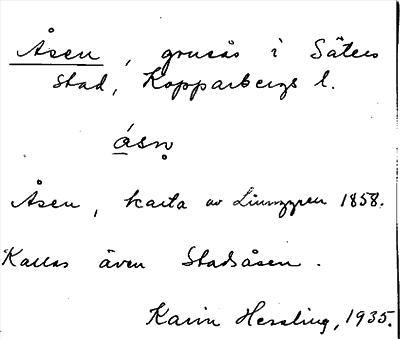 Åsen, grusås i Säters
stad, Kopparbergs l.
åsn̥
Åsen, karta av Ljunggren 1858.
Kallas även Stadsåsen.
Karin Hessling, 1935.